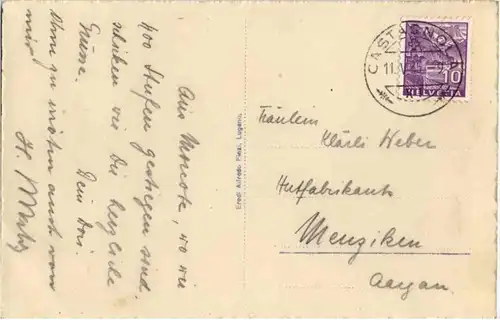 Aus Morcote, wo wir
400 Stufen gestiegen sind,
schicken wir Dir herzliche
Grüsse.
Dein Dori.
Ohne zu
auch von
mir
H.
Eredi Alfredo Finzi, Lugano.
CASTAGNOLA
11.V
10
HELVETIA
Fräulein
Klärli Weber
Hutfabrikants
Menziken
Aargau.